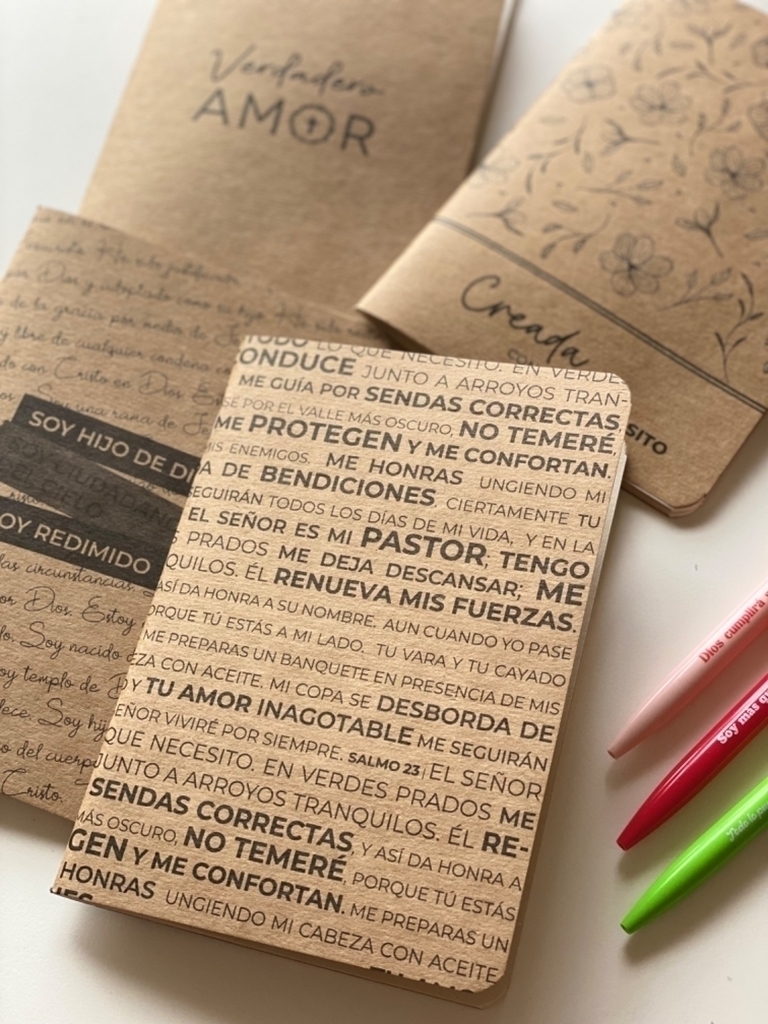 Verdadero
AMOR
Creada
CON
SITO
Dios y adoptado como su hijo
de la gracia por medio de
y libre de cualquier condena
do con Cristo en Dios. Estoy
Soy una rama de
SOY HIJO DE DI
SOY CIUDADANO
DEL CIELO
OY REDIMIDO
las circunstancias.
or Dios. Estoy
lo. Soy nacido d
oy templo de
dece. Soy hij
o del cuerpo
Cristo.
TODO LO QUE NECESITO. EN VERDE
ONDUCE JUNTO A ARROYOS TRAN-
ME GUÍA POR SENDAS CORRECTAS,
SE POR EL VALLE MÁS OSCURO, NO TEMERÉ,
ME PROTEGEN Y ME CONFORTAN.
MIS ENEMIGOS. ME HONRAS UNGIENDO MI
A DE BENDICIONES, CIERTAMENTE TU
SEGUIRÁN TODOS LOS DÍAS DE MI VIDA, Y EN LA
EL SEÑOR ES MI PASTOR; TENGO
S PRADOS ME DEJA DESCANSAR; ME
QUILOS. ÉL RENUEVA MIS FUERZAS.
ASÍ DA HONRA A SU NOMBRE. AUN CUANDO YO PASE
PORQUE TÚ ESTÁS A MI LADO. TU VARA Y TU CAYADO
ME PREPARAS UN BANQUETE EN PRESENCIA DE MIS
EZA CON ACEITE. MI COPA SE DESBORDA DE
D Y TU AMOR INAGOTABLE ME SEGUIRÁN
EÑOR VIVIRÉ POR SIEMPRE. SALMO 23 | EL SEÑOR
QUE NECESITO. EN VERDES PRADOS ME
JUNTO A ARROYOS TRANQUILOS. ÉL RE-
SENDAS CORRECTAS, Y ASÍ DA HONRA A
MÁS OSCURO, NO TEMERÉ, PORQUE TÚ ESTÁS
GEN Y ME CONFORTAN. ME PREPARAS UN
HONRAS UNGIENDO MI CABEZA CON ACEITE
Dios cumplirá
Soy más qu
Todo lo